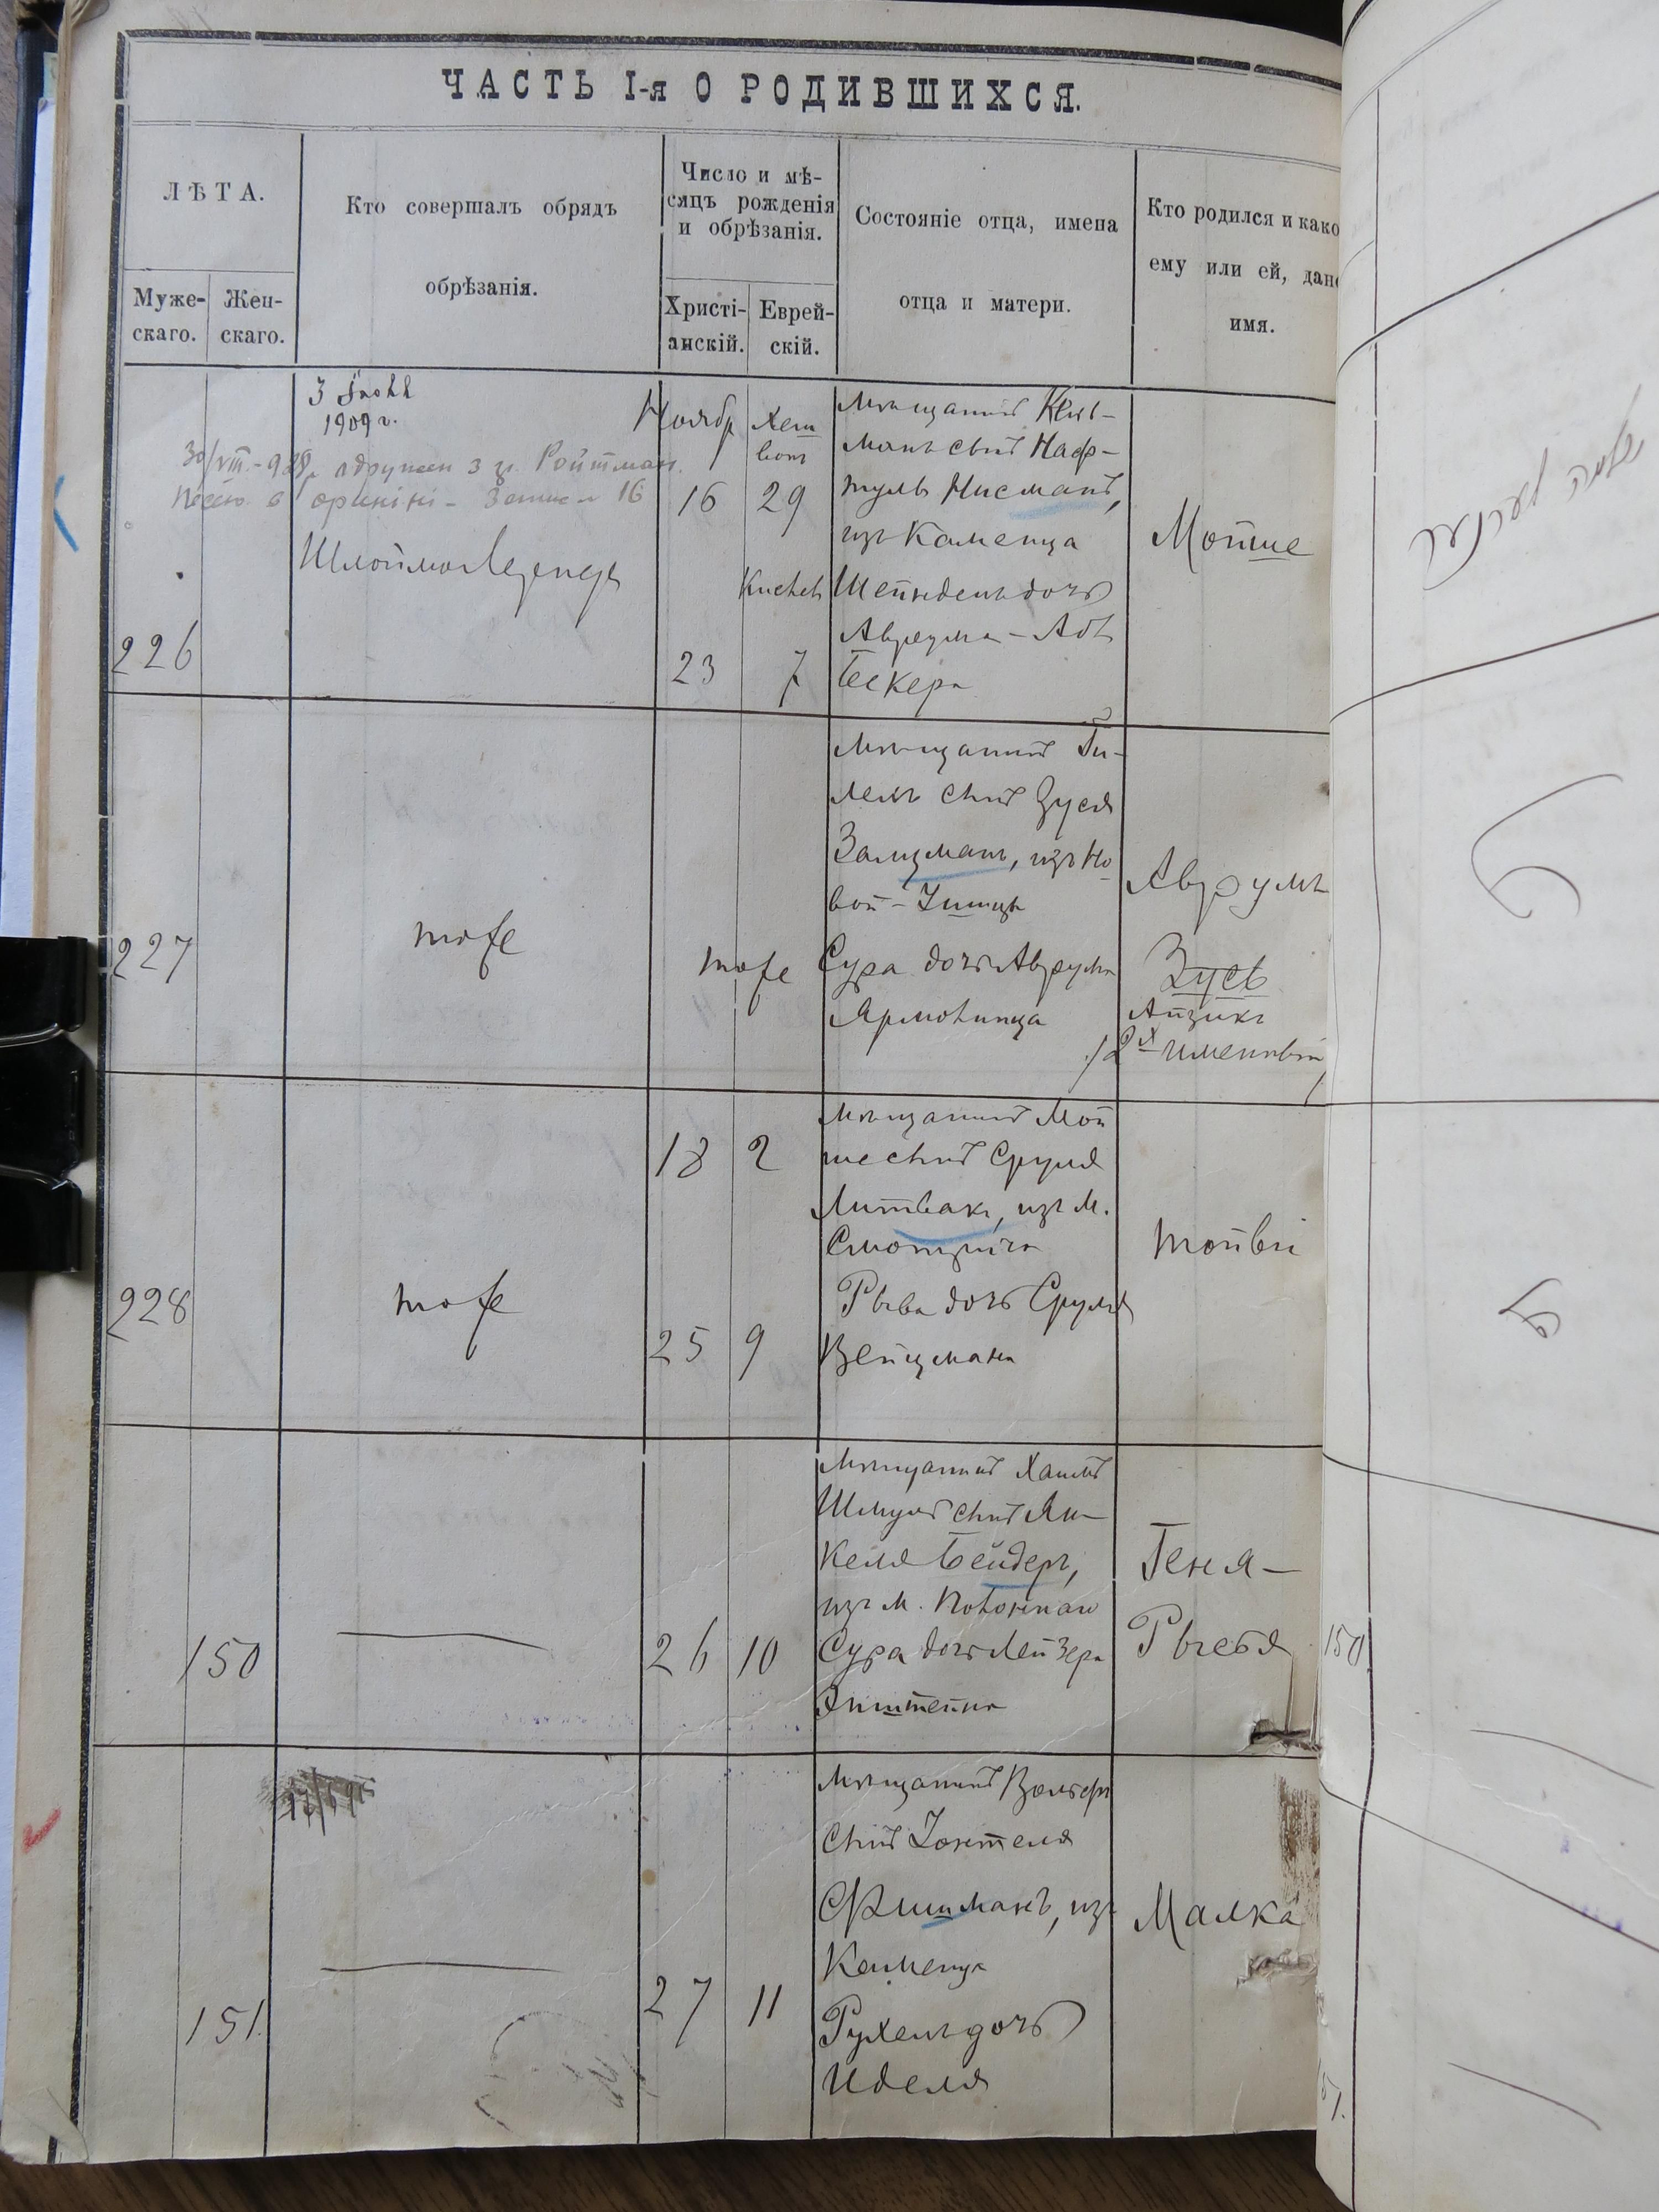 ЧАСТЬ I-я О РОДИВШИХСЯ.
ЛѢТА.
Муже-
скаго.
Жен-
скаго.
Кто совершалъ обрядъ
обрѣзанія.
Число и мѣ-
сяцъ рожденія
и обрѣзанія.
Христі-
анскій.
Еврей-
скій.
Состояніе отца, имена
отца и матери.
Кто родился и како
ему или ей, дано
имя.
226
1909 г.
Ройтман
16
Шлойма
Ноябр
16
23
Хеш
вон
29
7
мѣщанинъ
манъ сынъ Наф-
тулы Нисманъ,
изъ Каменца
Шейндель дочь
Аврума - Аб
Бекера
Мотше
227
тоже
тоже
мѣщанинъ Ги-
лель сынъ Зуся
Залцманъ, изъ Но
вой-Ушицы
Сура дочь Аврума
Ярмолинца
Аврумъ
Зусь
Айзикъ
/2х именный/
228
тоже
18
2
25
9
мѣщанинъ Мой
ше сынъ Сруля
Литвакъ, изъ м.
Смотрича
Рыва дочь Сруля
Вейцмана
Тойвi
150
26
10
мѣщанинъ Хаимъ
Шмуль сынъ Ян-
келя Бейдеръ,
изъ м.
Сура дочь Лейзера
Эпштейна
Геня-
Рыся
150
151.
27
11
мѣщанинъ Вольфъ
сынъ Іонтеля
Фишманъ, изъ
Каменца
Рухель дочь
Иделя
Малка
51.